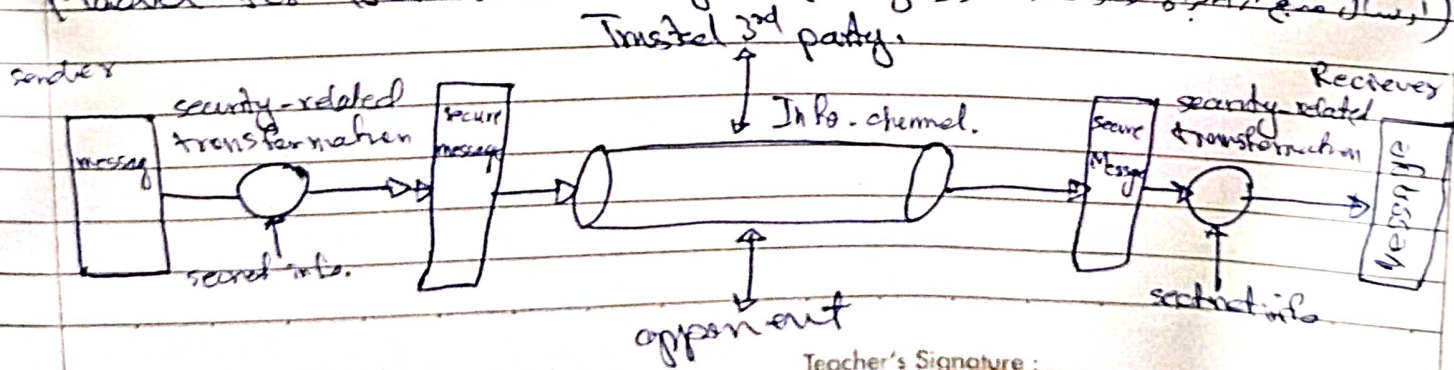 Trusted 3rd party.
sender
Reciever
security-related
transformation
secure
message
Info. channel.
secure
Messge
security related
transformation
messag
Message
secret info.
opponent
Teacher's Signature :